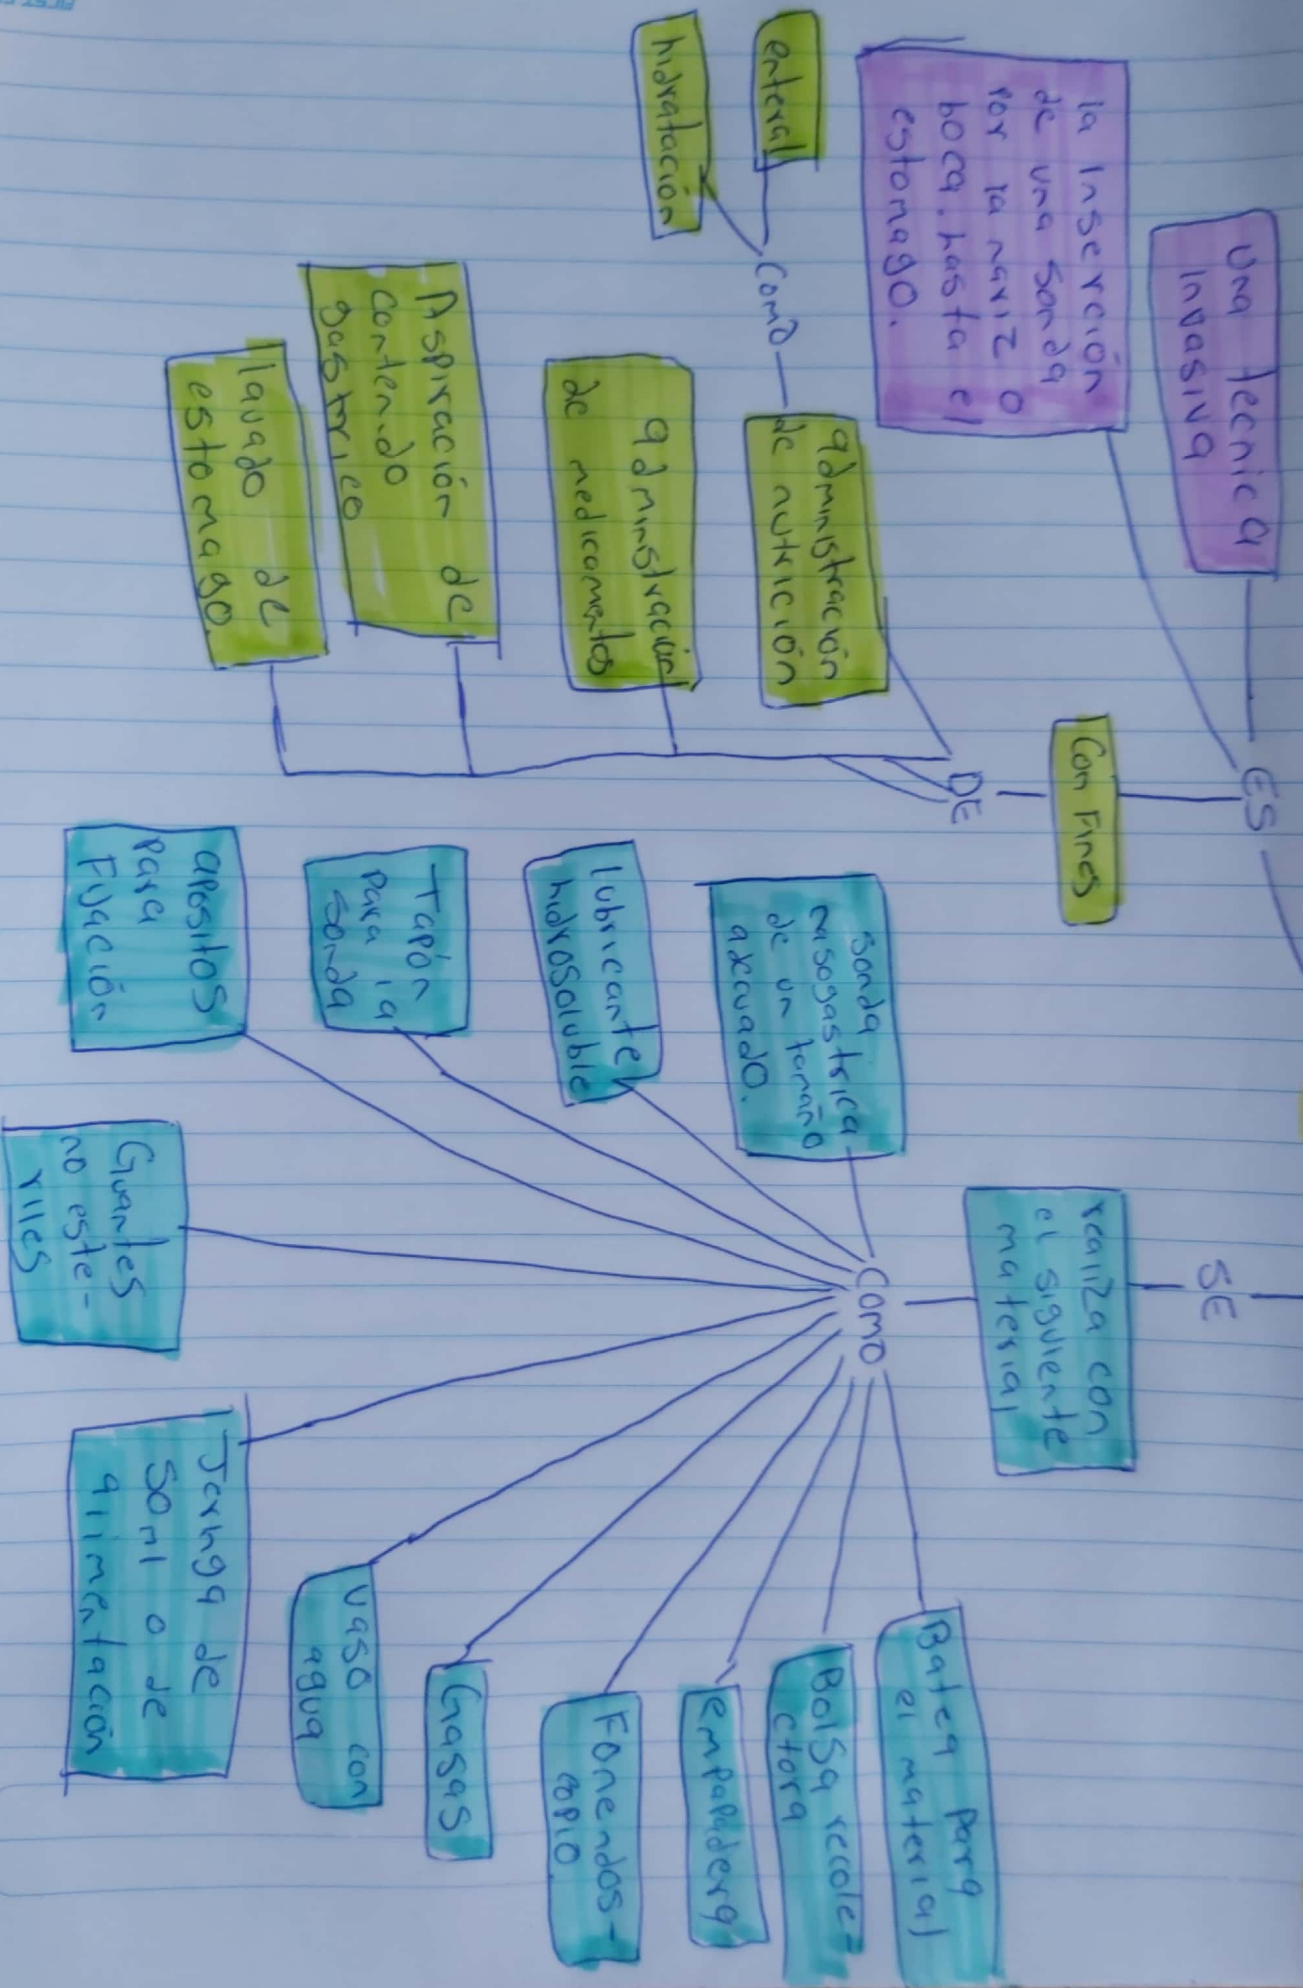 ES
Una tecnica
invasiva
la inserción
de una sonda
por la nariz o
boca. hasta el
estomago.
Con Fines
DE
administración
de nutrición
Como
enteral
hidratación
administración
de medicamentos
Aspiración de
Contenido
gastrico
lavado de
estomago.
SE
realiza con
el siguiente
material
Como
sonda
nasogastrica
de un tamaño
adecuado.
lubricante
hidrosoluble
Tapón
para la
sonda
apositos
para
Fijación
Guantes
no este-
riles
Jeringa de
50ml o de
alimentación
vaso con
agua
Gasas
Fonendos-
copio
empapadera
Bolsa recole-
ctora
Batea para
el material